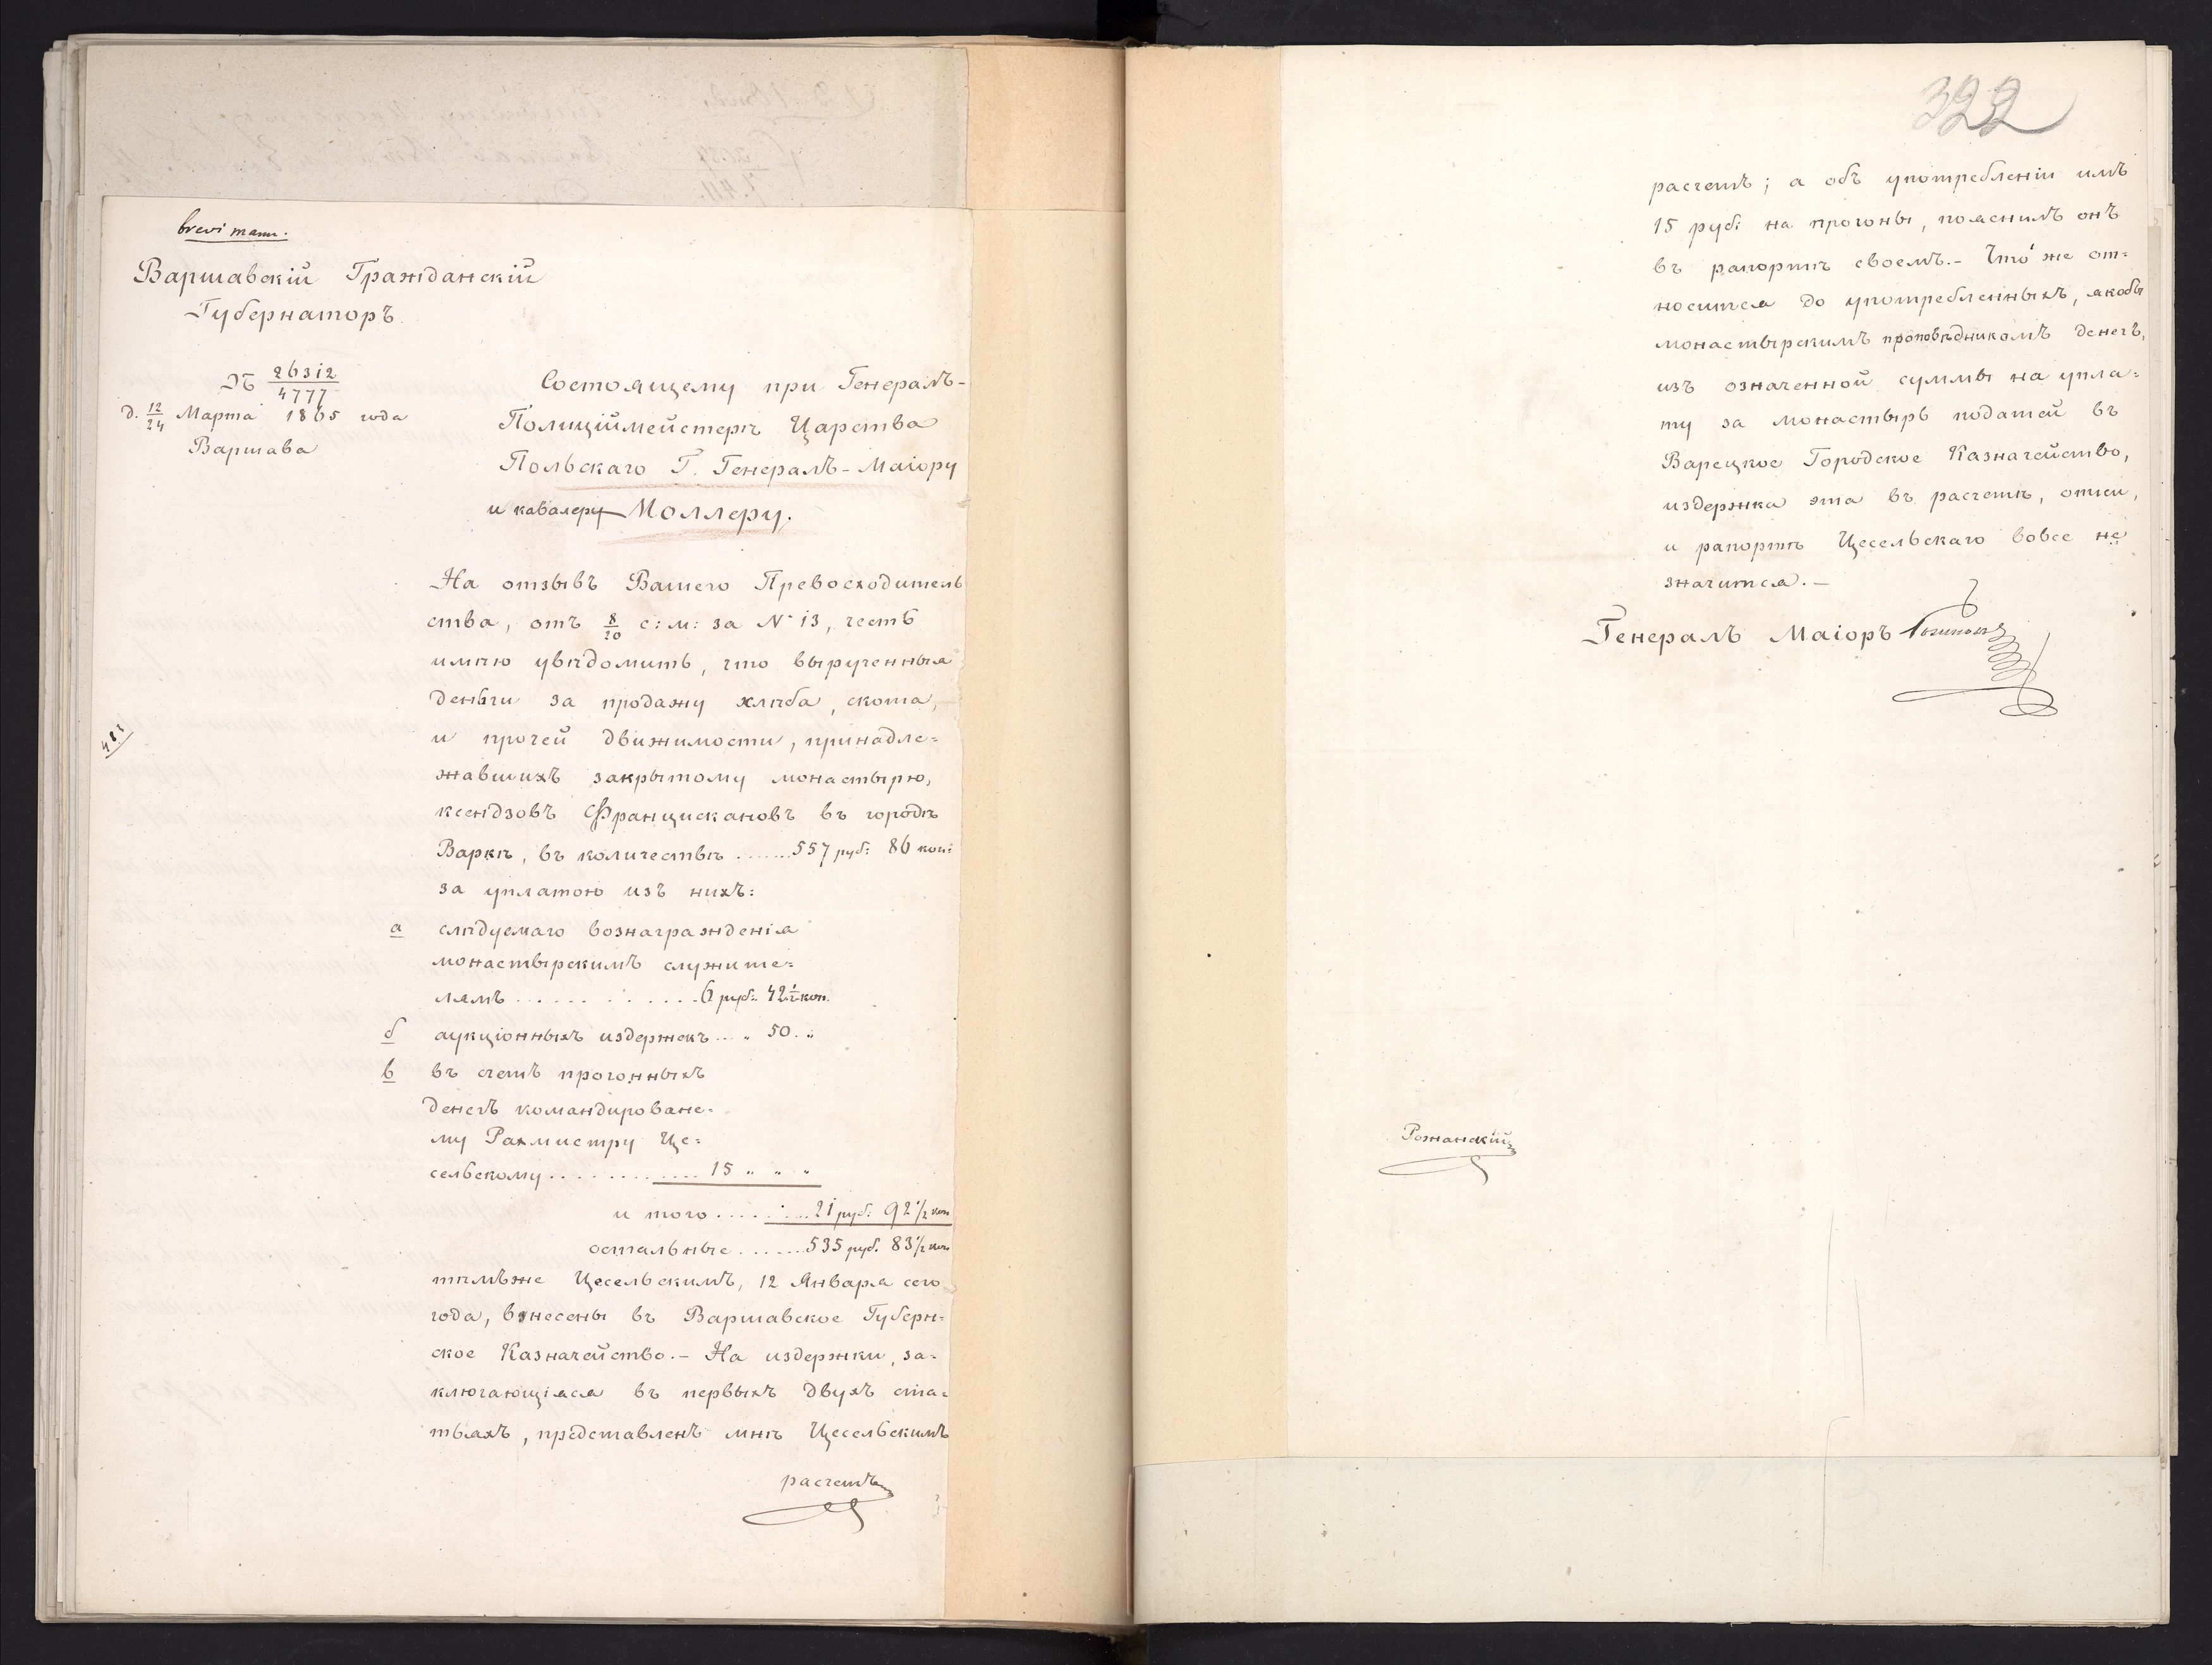 brevi manu.
Варшавскій Гражданскій
Губернаторъ
№ 26312/4777
д. 12/24 Марта 1865 года
Варшава
Состоящему при Генералъ-
Полиціймейстерѣ Царства
Польскаго Г. Генералъ-Маіору
и кавалеру Моллеру.
На отзывъ Вашего Превосходитель
ства, отъ 8/20 с: м: за N 13, честь
имѣю увѣдомить, что вырученныя
деньги за продажу хлѣба, скота,
и прочей движимости, принадле=
жавшихъ закрытому монастырю,
ксендзовъ Францискановъ въ городѣ
Варкѣ, въ количествѣ ....... 557 руб: 86 коп:
за уплатою изъ нихъ:
а слѣдуемаго вознагражденія
монастырскимъ служите=
лямъ . . . . . . . . . . . 6 руб: 42½ коп.
б аукціонныхъ издержекъ ... „ 50. „
в въ счетъ прогонныхъ
денегъ командироване=
му Рахмистру Це=
сельскому . . . . . . . . . . . . 15 „ „ „
и того . . . . . . . . 21 руб: 92½ коп
остальные . . . . . . . 535 руб. 83½ коп
тѣмъже Цесельскимъ, 12 Января сего
года, внесены въ Варшавское Губерн=
ское Казначейство.- На издержки, за=
ключающіяся въ первыхъ двухъ ста=
тьяхъ, представленъ мнѣ Цесельскимъ
расчетъ
483
322
расчетъ; а объ употребленіи имъ
15 руб: на прогоны, пояснилъ онъ
въ рапортѣ своемъ.- Что́ же от=
носится до употребленныхъ, якобы
монастырскимъ проповѣдникомъ денегъ,
изъ означенной суммы на упла=
ту за монастырь податей въ
Варецкое Городское Казначейство,
издержка эта въ расчетѣ, описи,
и рапортѣ Цесельскаго вовсе не
значится.-
Генералъ Маіоръ
Рожанскій